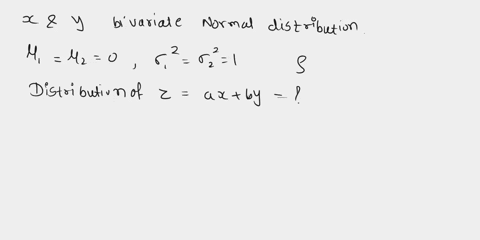 x & y bivariate Normal distribution
μ₁ = μ₂ = 0 , σ₁² = σ₂² = 1 ρ
Distribution of z = ax + by = ?